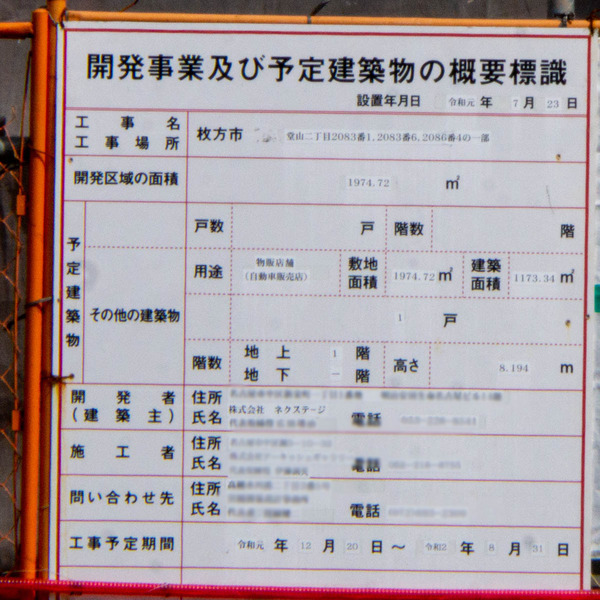 開発事業及び予定建築物の概要標識
設置年月日 令和元 年 7 月 23 日
工事名
工事場所
枚方市 堂山二丁目2083番1、2083番6、2086番4の一部
開発区域の面積 1974.72 ㎡
予定建築物
戸数 戸 階数 階
その他の建築物
用途 物販店舗
(自動車販売店)
敷地面積 1974.72 ㎡ 建築面積 1173.34 ㎡
1 戸
階数 地上 1 階
地下 ー 階
高さ 8.194 m
開発者
(建築主)
住所
氏名 株式会社 ネクステージ 電話
施工者
住所
氏名 電話
問い合わせ先
住所
氏名 電話
工事予定期間 令和元 年 12 月 20 日 ～ 令和2 年 8 月 31 日